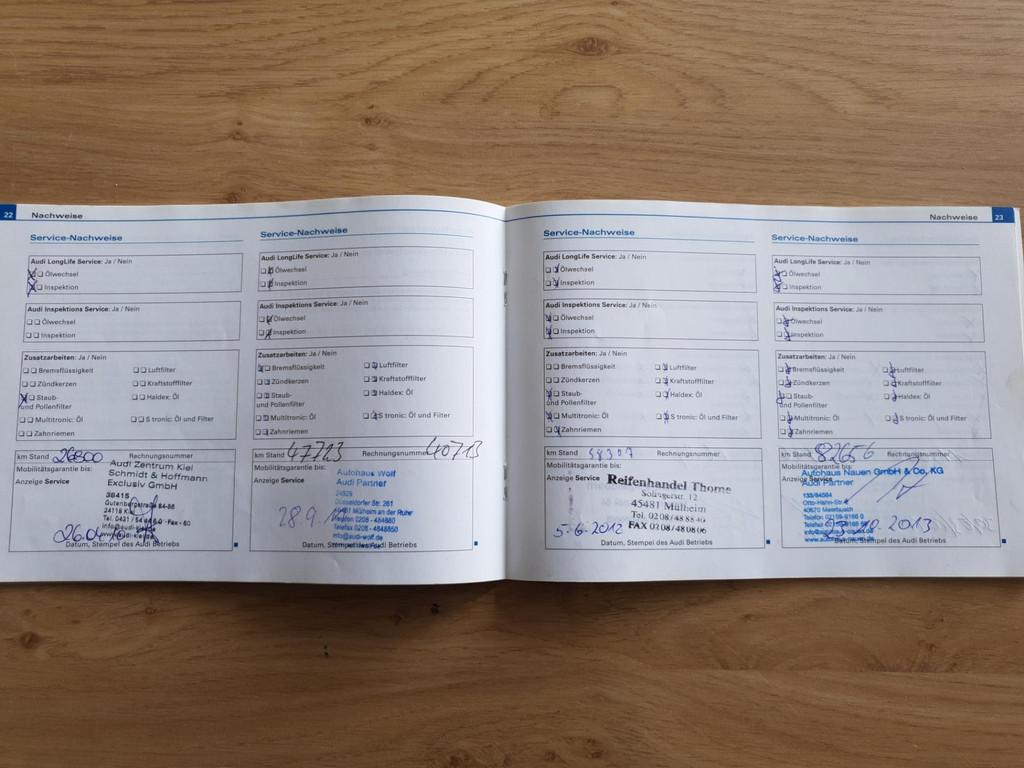 22 Nachweise
Service-Nachweise
Audi LongLife Service: Ja / Nein
Ölwechsel
Inspektion
Audi Inspektions Service: Ja / Nein
Ölwechsel
Inspektion
Zusatzarbeiten: Ja / Nein
Bremsflüssigkeit
Luftfilter
Zündkerzen
Kraftstofffilter
Staub- und Pollenfilter
Haldex: Öl
Multitronic: Öl
S tronic: Öl und Filter
Zahnriemen
km Stand 26800 Rechnungsnummer
Mobilitätsgarantie bis:
Anzeige Service
Audi Zentrum Kiel
Schmidt & Hoffmann
Exclusiv GmbH
38415
Gutenbergstraße 84-88
26.04.10
Datum, Stempel des Audi Betriebs
Service-Nachweise
Audi LongLife Service: Ja / Nein
Ölwechsel
Inspektion
Audi Inspektions Service: Ja / Nein
Ölwechsel
Inspektion
Zusatzarbeiten: Ja / Nein
Bremsflüssigkeit
Luftfilter
Zündkerzen
Kraftstofffilter
Staub- und Pollenfilter
Haldex: Öl
Multitronic: Öl
S tronic: Öl und Filter
Zahnriemen
km Stand 47713 Rechnungsnummer 40713
Mobilitätsgarantie bis:
Anzeige Service
Autohaus Wolf
Audi Partner
Düsseldorfer Str. 261
Mülheim an der Ruhr
Telefon 0208 - 484880
Telefax 0208 - 4848850
info@audi-wolf.de
28.9.
Datum, Stempel des Audi Betriebs
Nachweise 23
Service-Nachweise
Audi LongLife Service: Ja / Nein
Ölwechsel
Inspektion
Audi Inspektions Service: Ja / Nein
Ölwechsel
Inspektion
Zusatzarbeiten: Ja / Nein
Bremsflüssigkeit
Luftfilter
Zündkerzen
Kraftstofffilter
Staub- und Pollenfilter
Haldex: Öl
Multitronic: Öl
S tronic: Öl und Filter
Zahnriemen
km Stand 58307 Rechnungsnummer
Mobilitätsgarantie bis:
Anzeige Service
Reifenhandel Thome
45481 Mülheim
Tel. 0208/48 88 40
FAX 0208/48 08 06
5-6-2012
Datum, Stempel des Audi Betriebs
Service-Nachweise
Audi LongLife Service: Ja / Nein
Ölwechsel
Inspektion
Audi Inspektions Service: Ja / Nein
Ölwechsel
Inspektion
Zusatzarbeiten: Ja / Nein
Bremsflüssigkeit
Luftfilter
Zündkerzen
Kraftstofffilter
Staub- und Pollenfilter
Haldex: Öl
Multitronic: Öl
S tronic: Öl und Filter
Zahnriemen
km Stand 82656 Rechnungsnummer
Mobilitätsgarantie bis:
Anzeige Service
Autohaus Nauen GmbH & Co. KG
Audi Partner
Otto-Hahn-Str.
40670 Meerbusch
23.10.2013
Datum, Stempel des Audi Betriebs